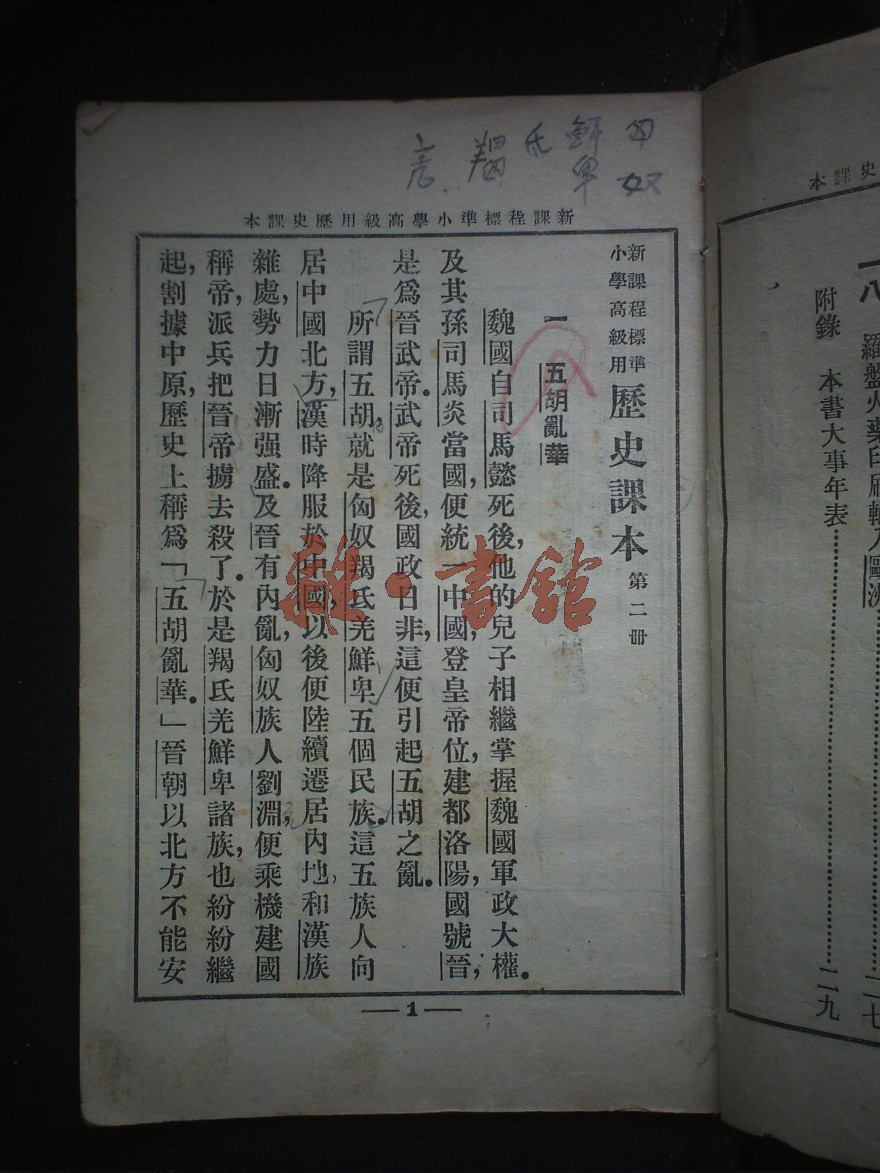 匈奴 鮮卑 氏 羯 羌
新課程標準小學高級用歷史課本
新課程標準
小學高級用
歷史課本 第二册
一 五胡亂華
魏國自司馬懿死後,他的兒子相繼掌握魏國軍政大權。
及其孫司馬炎當國,便統一中國,登皇帝位,建都洛陽,國號晉,
是爲晉武帝。武帝死後,國政日非,這便引起五胡之亂。
所謂五胡,就是匈奴羯氐羌鮮卑五個民族。這五族人向
居中國北方,漢時降服於中國,以後便陸續遷居內地,和漢族
雜處,勢力日漸强盛。及晉有內亂,匈奴族人劉淵,便乘機建國
稱帝,派兵把晉帝擄去殺了。於是羯氐羌鮮卑諸族,也紛紛繼
起,割據中原,歷史上稱爲「五胡亂華。」晉朝以北方不能安
—1—
雜·書館
史課本
一八 羅盤火藥印刷輸入歐洲……二七
附錄 本書大事年表……二九